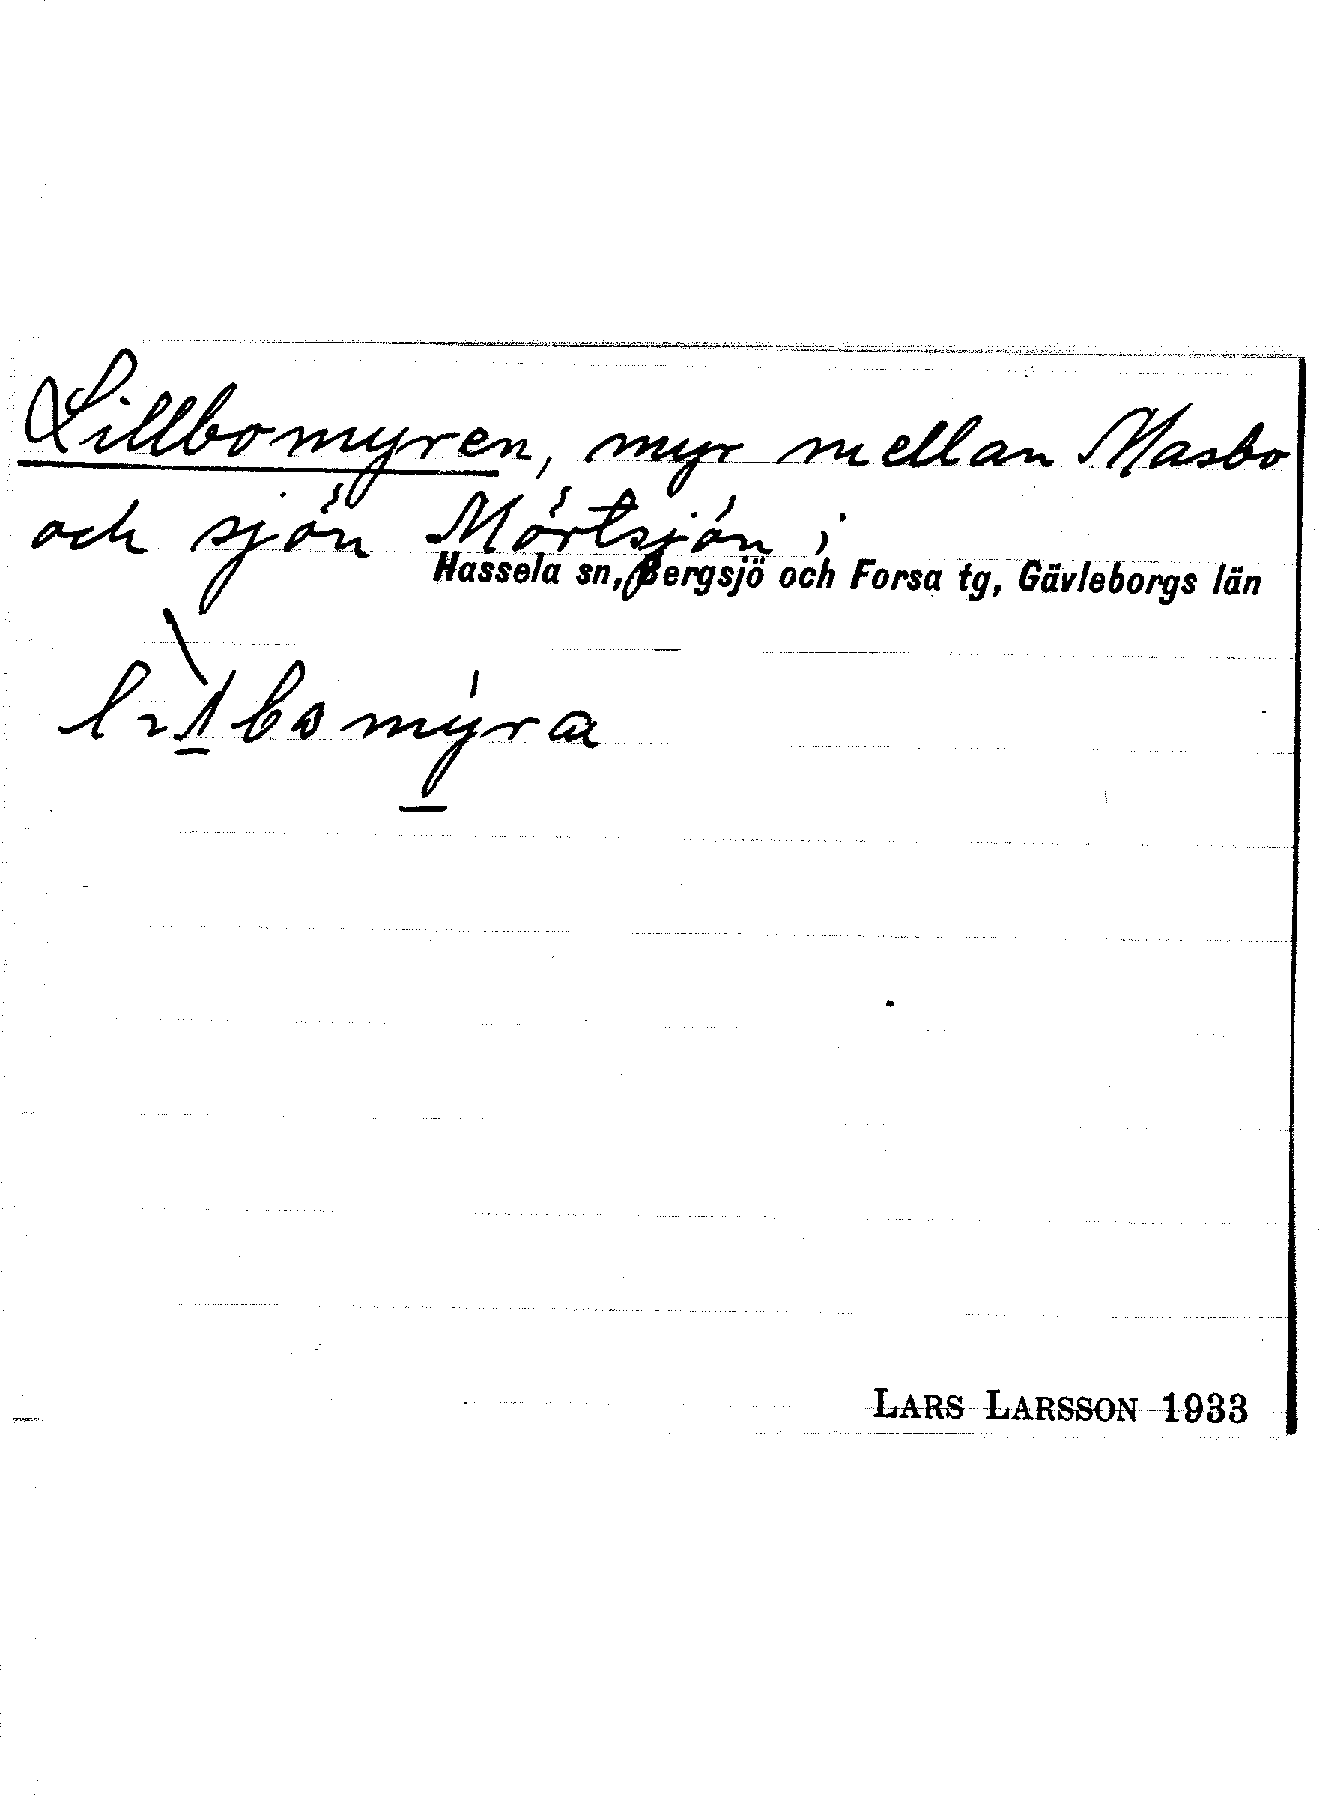 Lillbomyren, myr mellan Masbo
och sjön Mörtsjön i
Hassela sn, Bergsjö och Forsa tg, Gävleborgs län
LARS LARSSON 1933